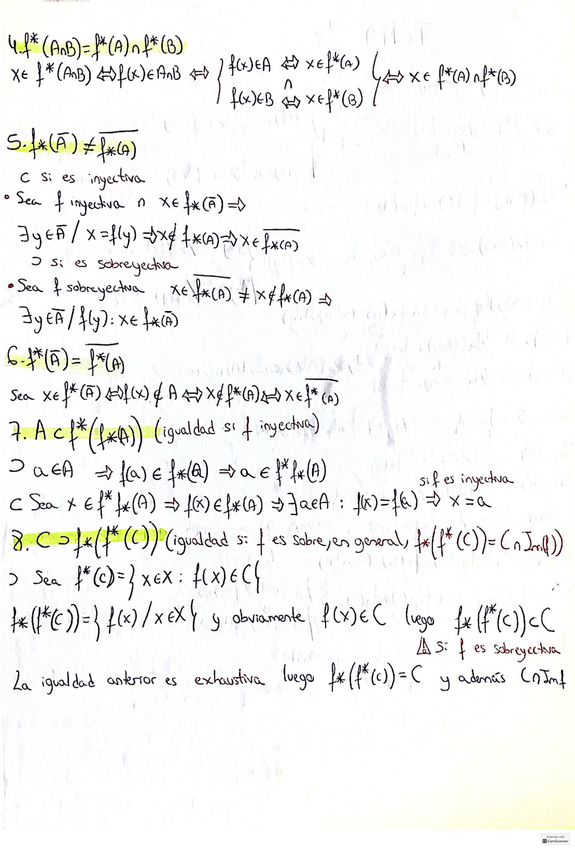 4. f*(A∩B)=f*(A)∩f*(B)
x∈ f*(A∩B) ⇔ f(x)∈A∩B ⇔ { f(x)∈A ⇔ x∈f*(A) ∩ f(x)∈B ⇔ x∈f*(B) } ⇔ x∈ f*(A)∩f*(B)
5. f⁎(Ā) ≠ \overline{f⁎(A)}
⊂ si es inyectiva
• Sea f inyectiva ∩ x∈f⁎(Ā) ⇒
∃y∈Ā / x=f(y) ⇒ x∉ f⁎(A) ⇒ x∈\overline{f⁎(A)}
⊃ si es sobreyectiva
• Sea f sobreyectiva x∈\overline{f⁎(A)} ≠ x∉f⁎(A) ⇒
∃y∈Ā / f(y): x∈ f⁎(Ā)
6. f*(Ā) = \overline{f*(A)}
Sea x∈f*(Ā) ⇔ f(x)∉A ⇔ x∉f*(A) ⇔ x∈\overline{f*(A)}
7. A⊂f*(f⁎(A)) (igualdad si f inyectiva)
⊃ a∈A ⇒ f(a)∈f⁎(a) ⇒ a∈f*f⁎(A)
si f es inyectiva
⊂ Sea x∈f*f⁎(A) ⇒ f(x)∈f⁎(A) ⇒ ∃a∈A : f(x)=f(a) ⇒ x=a
8. C⊃f⁎(f*(C)) (igualdad si f es sobre, en general, f⁎(f*(C))=C∩Imf))
⊃ Sea f*(C)={x∈X : f(x)∈C}
f⁎(f*(C))={f(x)/x∈X} y obviamente f(x)∈C luego f⁎(f*(C))⊂C
⚠ Si f es sobreyectiva
La igualdad anterior es exhaustiva luego f⁎(f*(C))=C y además C∩Imf
Scanned with
CamScanner